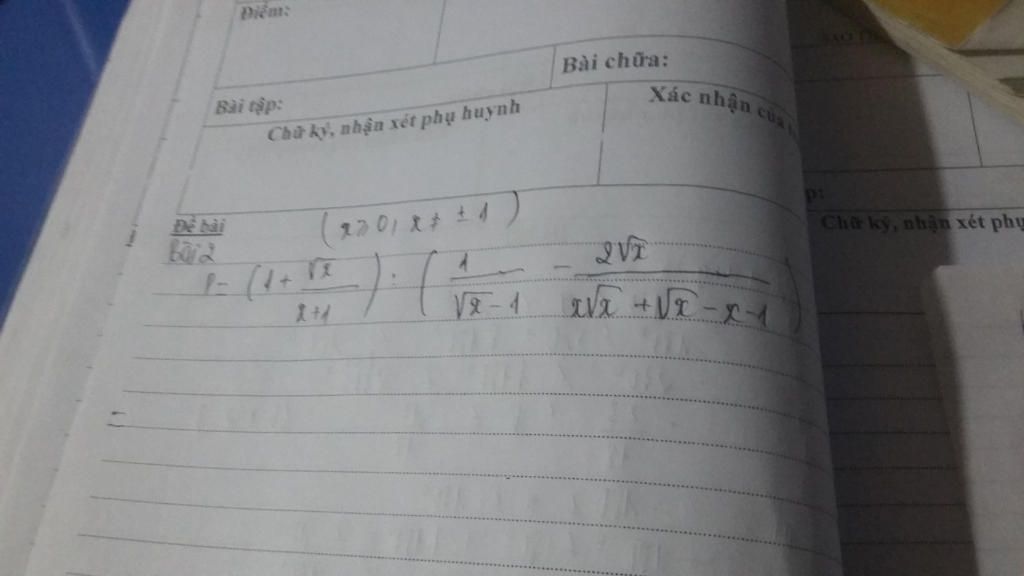 Điểm:
Bài chữa:
Bài tập:
Chữ ký, nhận xét phụ huynh
Xác nhận của
Đề bài
(x ≥ 0, x ≠ ± 1)
Bài 2
P = (1 + √x / x+1) : (1 / √x - 1 - 2√x / x√x + √x - x - 1)
=
p:
Chữ ký, nhận xét phụ